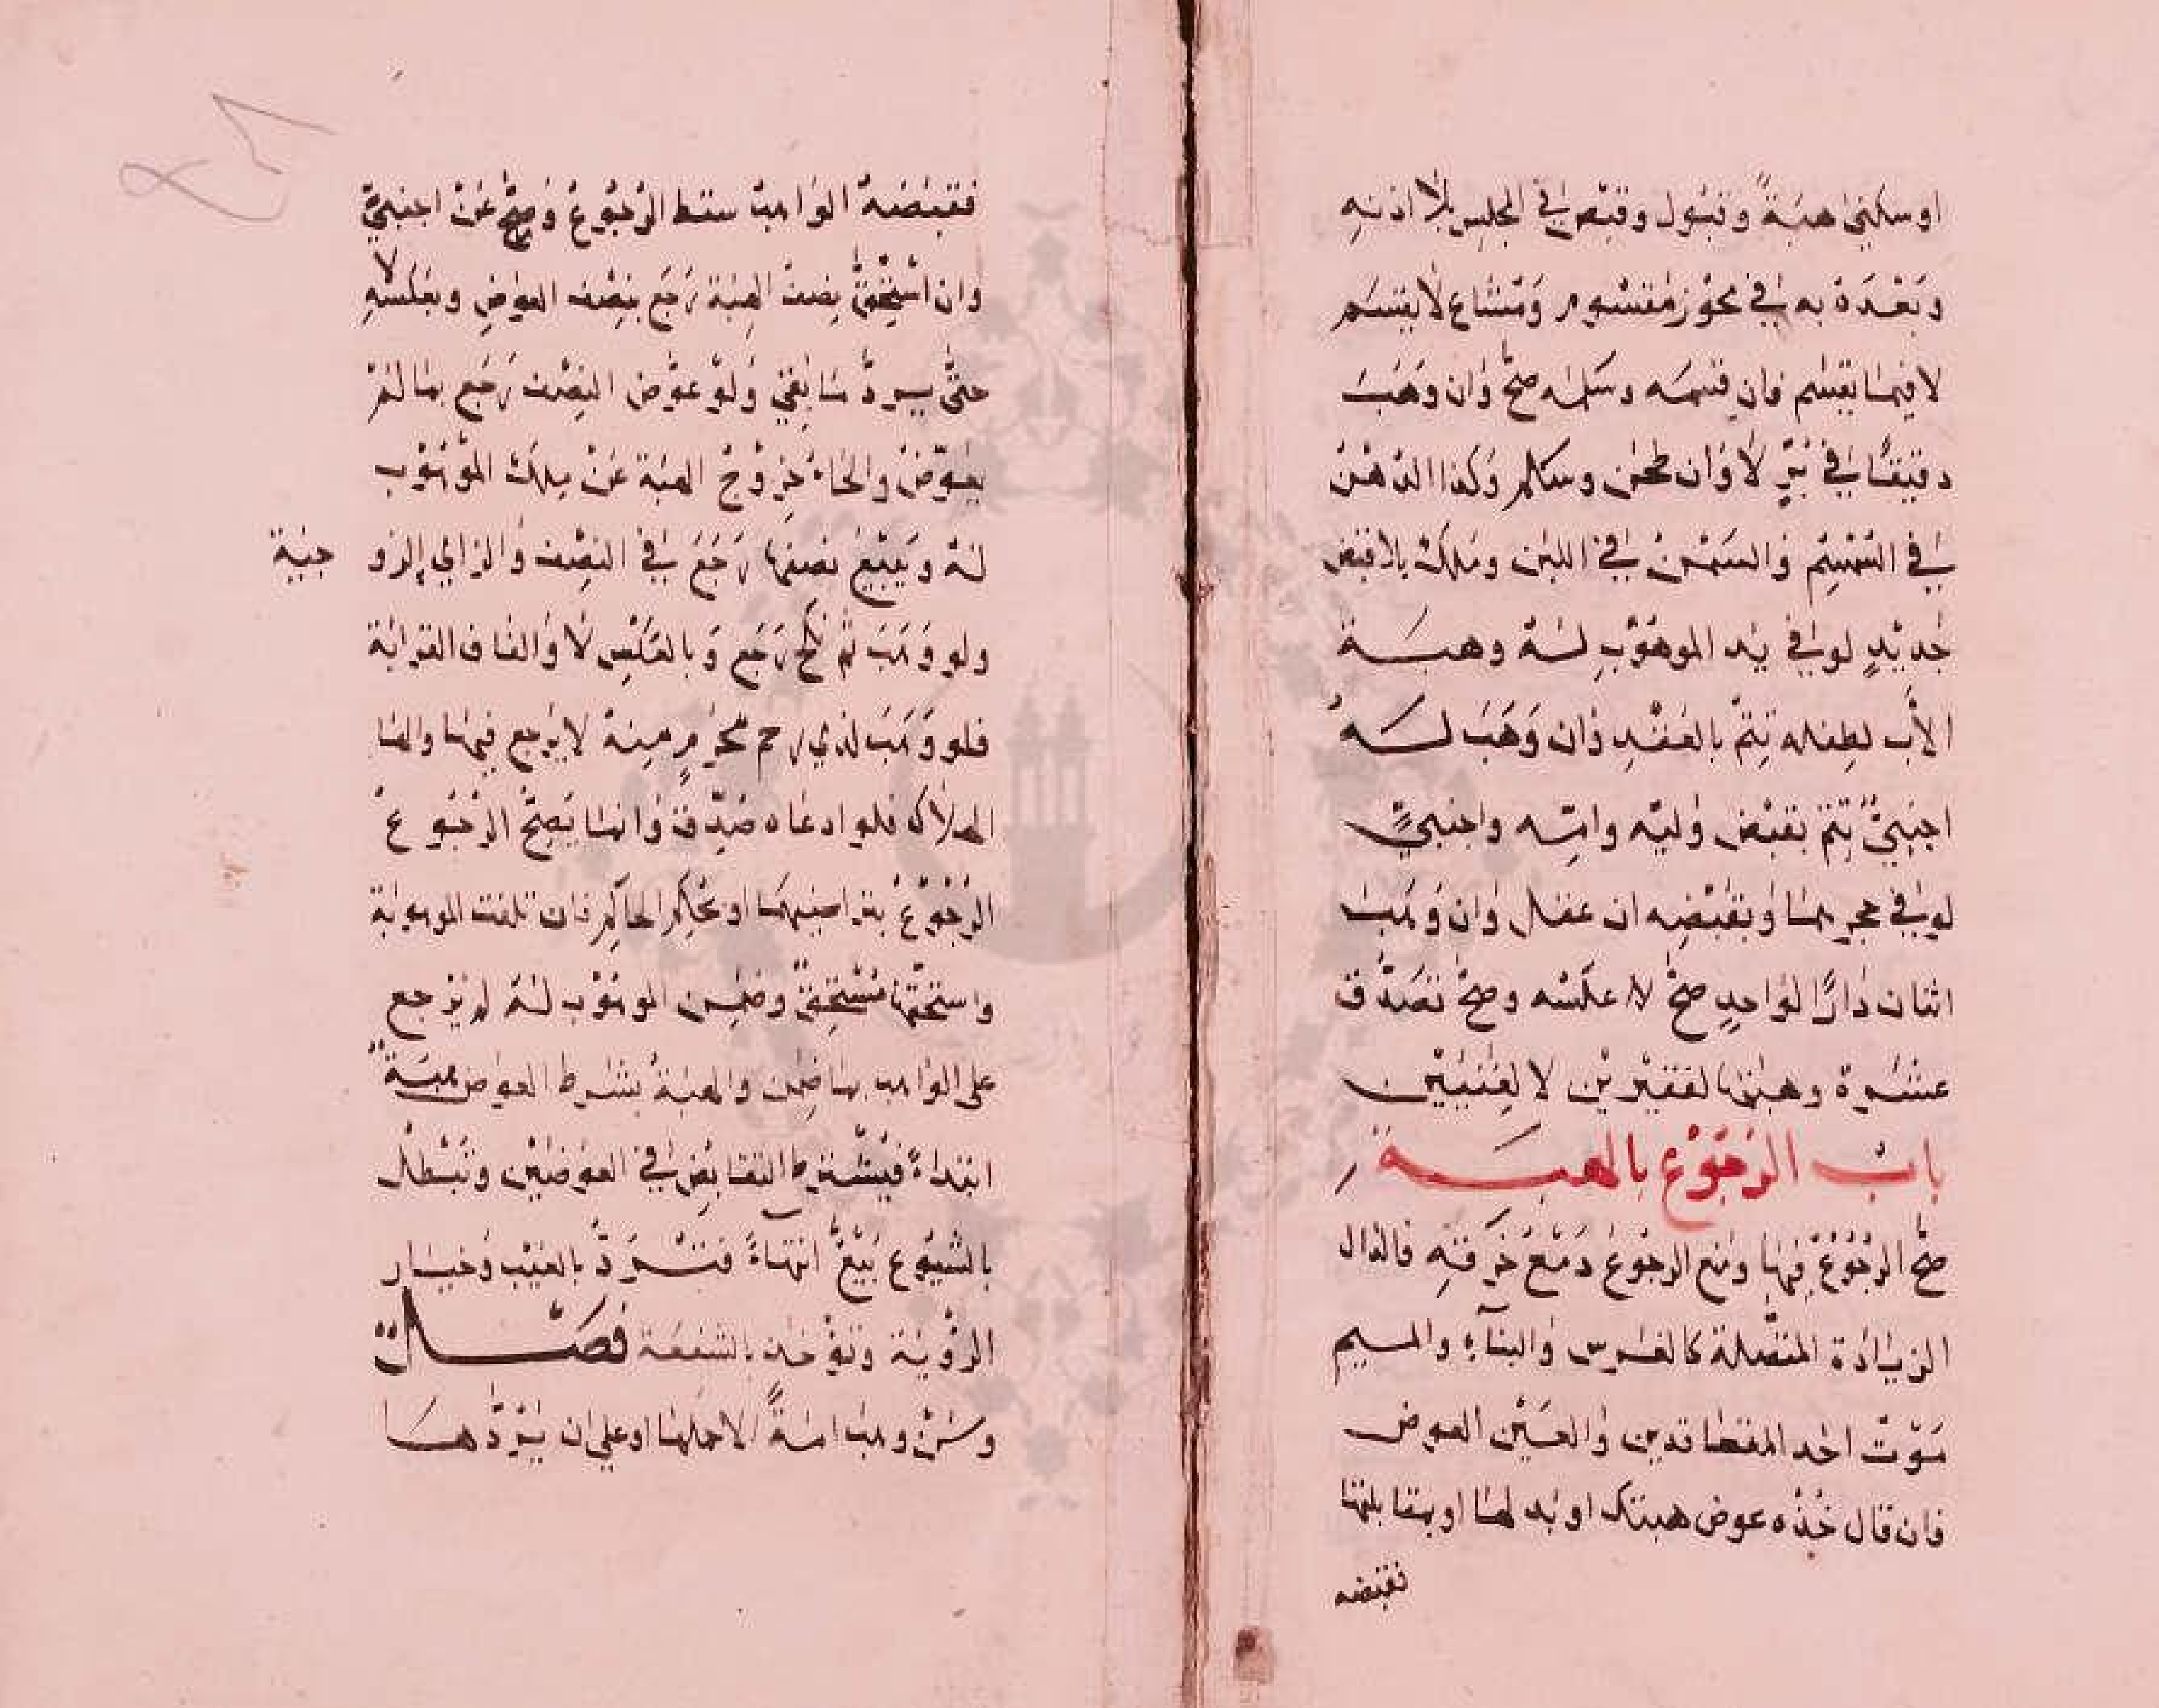 او سكنى هبة وقبول وقبض في المجلس بلا اذنه
وبعده به في محوز مقسوم ومشاع لا يقسم
لا فيما يقسم فان قسمه وسلمه صح وان وهب
دقيقا في بر لا وان طحن وسلم وكذا الدهن
في السمسم والسمن في اللبن وملك بلا قبض
جديد لو في يد الموهوب له وهبة
الأب لطفله تتم بالعقد وان وهب له
اجنبي تتم بقبض وليه وامه واجنبي
لو في حجرهما وبقبضه ان عقل وان وهب
اثنان دارا لواحد صح لا عكسه وصح تصدق
عشرة وهبتها لفقيرين لا لغنيين
باب الرجوع بالهبة
صح الرجوع فيها ومنع الرجوع دمع خزقه فالدال
الزيادة المتصلة كالغرس والبناء والميم
موت احد المتعاقدين والعين العوض
فان قال خذه عوض هبتك او بدلها او بمقابلتها
فقبضه
فقبضه الواهب سقط الرجوع وصح عن اجنبي
وان استحق نصف الهبة رجع بنصف العوض وبعكسه لا
حتى يرد ما بقي ولو عوض النصف رجع بما لم
يعوض والخاء خروج الهبة عن ملك الموهوب
له وببيع نصفها رجع في النصف والزاي الزو جية
ولو وهب ثم نكح رجع وبالعكس لا والقاف القرابة
فلو وهب لذي رحم محرم منه لا يرجع فيها والها
الهلاك فلو ادعاه صدق وانما يصح الرجوع
الرجوع بتراضيهما او بحكم الحاكم فان تلفت الموهوبة
واستحقها مستحق وضمن الموهوب له لم يرجع
على الواهب بما ضمن والهبة بشرط العوض هبة
ابتداء فيشترط التقابض في العوضين وتبطل
بالشيوع بيع انتهاء فترد بالعيب وخيار
الرؤية وتؤخذ بالشفعة فصل
ومن وهب امة الا حملها او على ان يردها